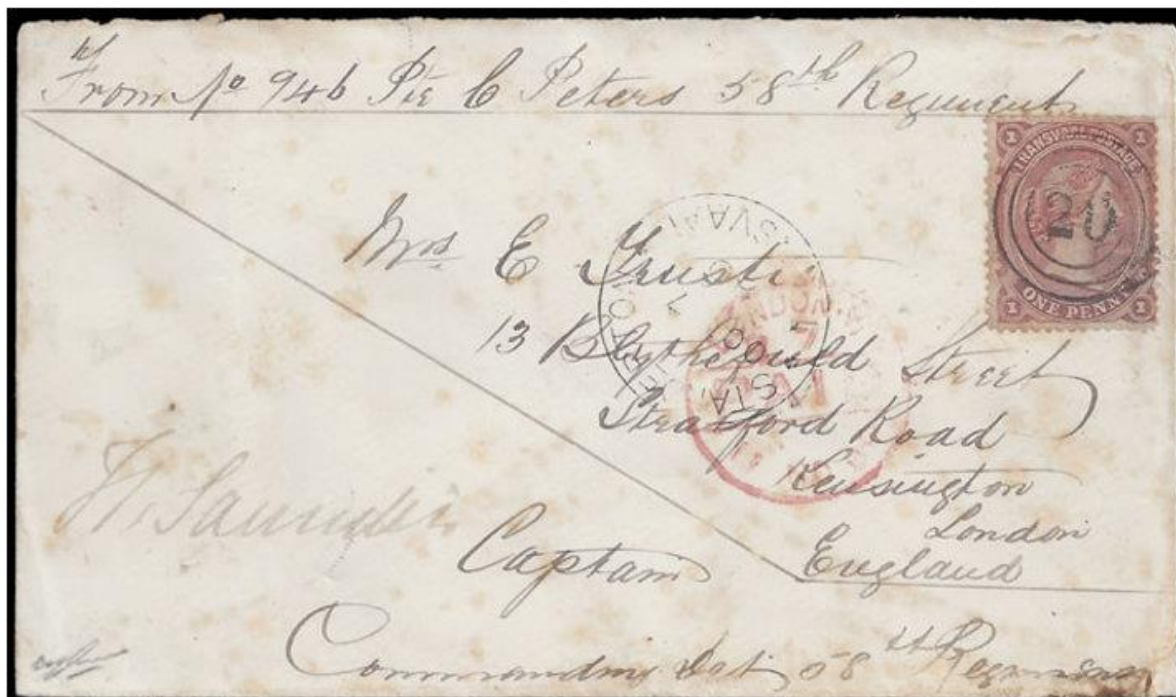 From No 946 Pte C Peters 58th Regiment
TRANSVAAL POSTAGE
1 1
20
ONE PENNY
1 1
Mrs E
13 Blythefield Street
Stratford Road
Kensington
London
England
H. Saunders
Captain
Commanding Det 58th Regiment